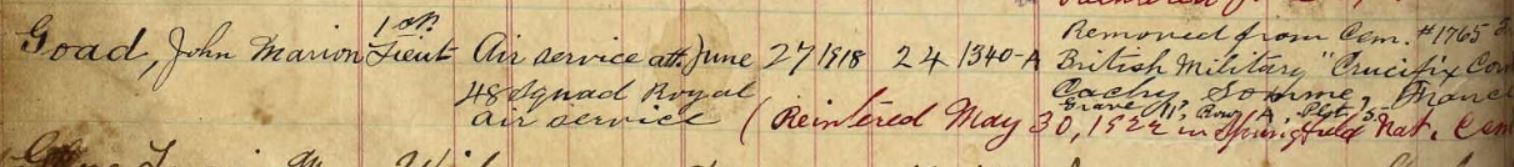 1st
Goad, John Marion Lieut Air service att. June 27 1918 24 1340-A Removed from Cem. #1765
48 Squad Royal British Military "Crucifix Cor
air service Cachy, Somme, Franc
Grave 11, Row A, Plot 5
(Reintered May 30, 1922 in Springfield Nat. Cem